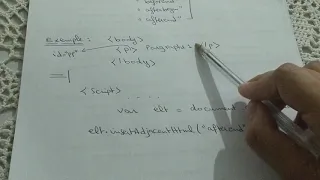 "beforeend"
"afterbegin"
"afterend"
Example: <body>
id="p" <p> Paragraph: </p>
</body>
<script>
....
var elt = document
elt.insertAdjacentHtml("afterend"